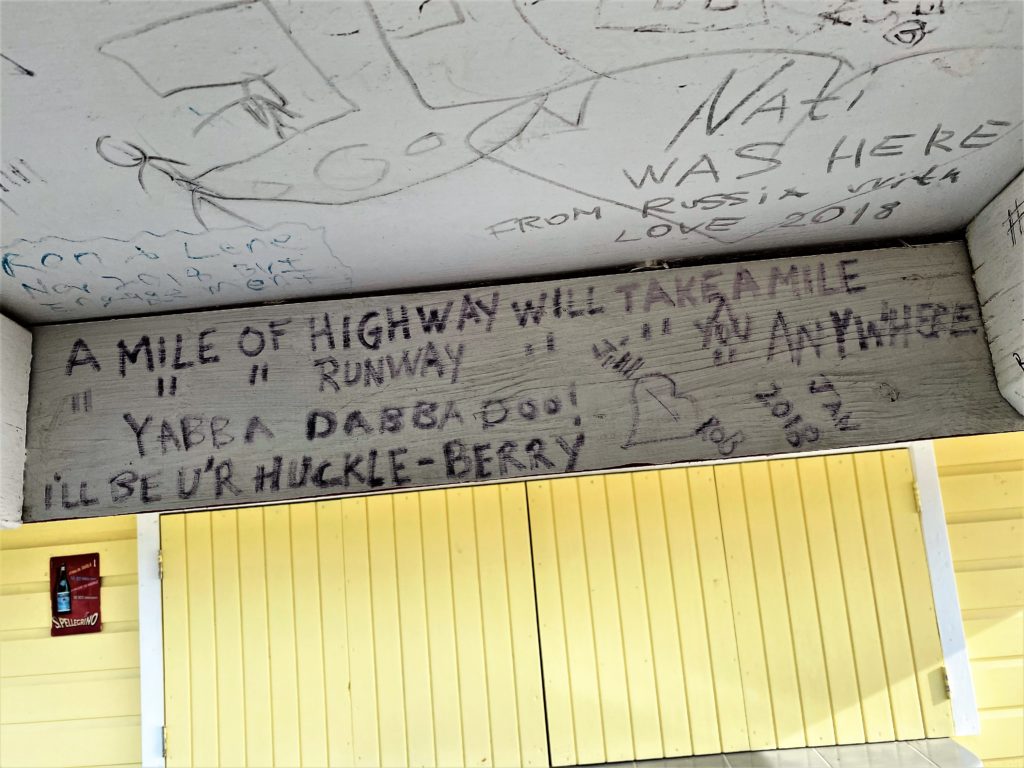 Nati
WAS HERE
FROM RUSSIA with
LOVE 2018
Ron & Lene
Nov 2019
A MILE OF HIGHWAY WILL TAKE A MILE
"" " " RUNWAY " " " YOU ANYWHERE
YABBA DABBA DOO!
I'LL BE U'R HUCKLE-BERRY
JAN
2018
S.PELLEGRINO